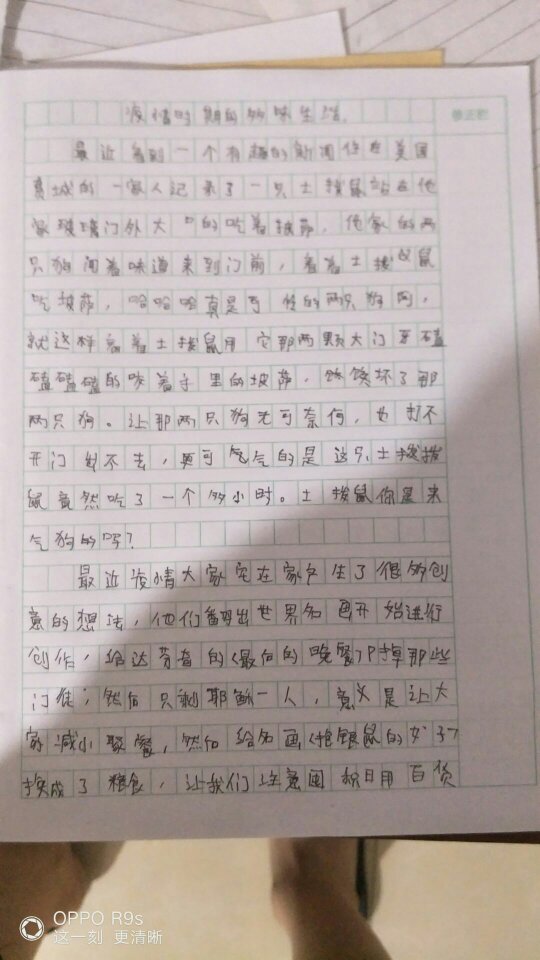 疫情时期的趣味生活.
最近看到一个有趣的新闻住在美国
费城的一家人记录了一只土拨鼠站在他
家玻璃门外大口的吃着披萨，他家的两
只狗闻着味道来到门前，看着土拨鼠
吃披萨，哈哈哈真是可怜的两只狗阿，
就这样看着土拨鼠用它那两颗大门牙磕
磕磕磕的吃着手里的披萨，馋坏了那
两只狗。让那两只狗无可奈何，也打不
开门出不去，更可气气的是这只土拨拨
鼠竟然吃了一个多小时。土拨鼠你是来
气狗的吗？
最近疫情大家宅在家产生了很多创
意的想法，他们翻出世界名画开始进行
创作，给达芬奇的《最后的晚餐》P掉那些
门徒；然后只剩耶稣一人，意义是让大
家减小聚餐，然后给名画《抱银鼠的女子》
换成了粮食，让我们注意囤积日用百货
OPPO R9s
这一刻 更清晰